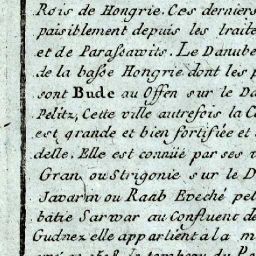 Rois de Hongrie. Ces derniers
paisiblement depuis les traite
et de Paraſsawits. Le Danube
de la baſse Hongrie dont les p
sont Bude au Offen sur le Da
Pelitz, Cette ville autrefois la C
est grande et bien fortifiée et
delle. Elle est connüe par ses
Gran ou Strigonie sur le D
Javarin ou Raab Eveché pet
bâtie Sarwar au Confluent de
Gudnez elle appartient a la m
le tombeau du